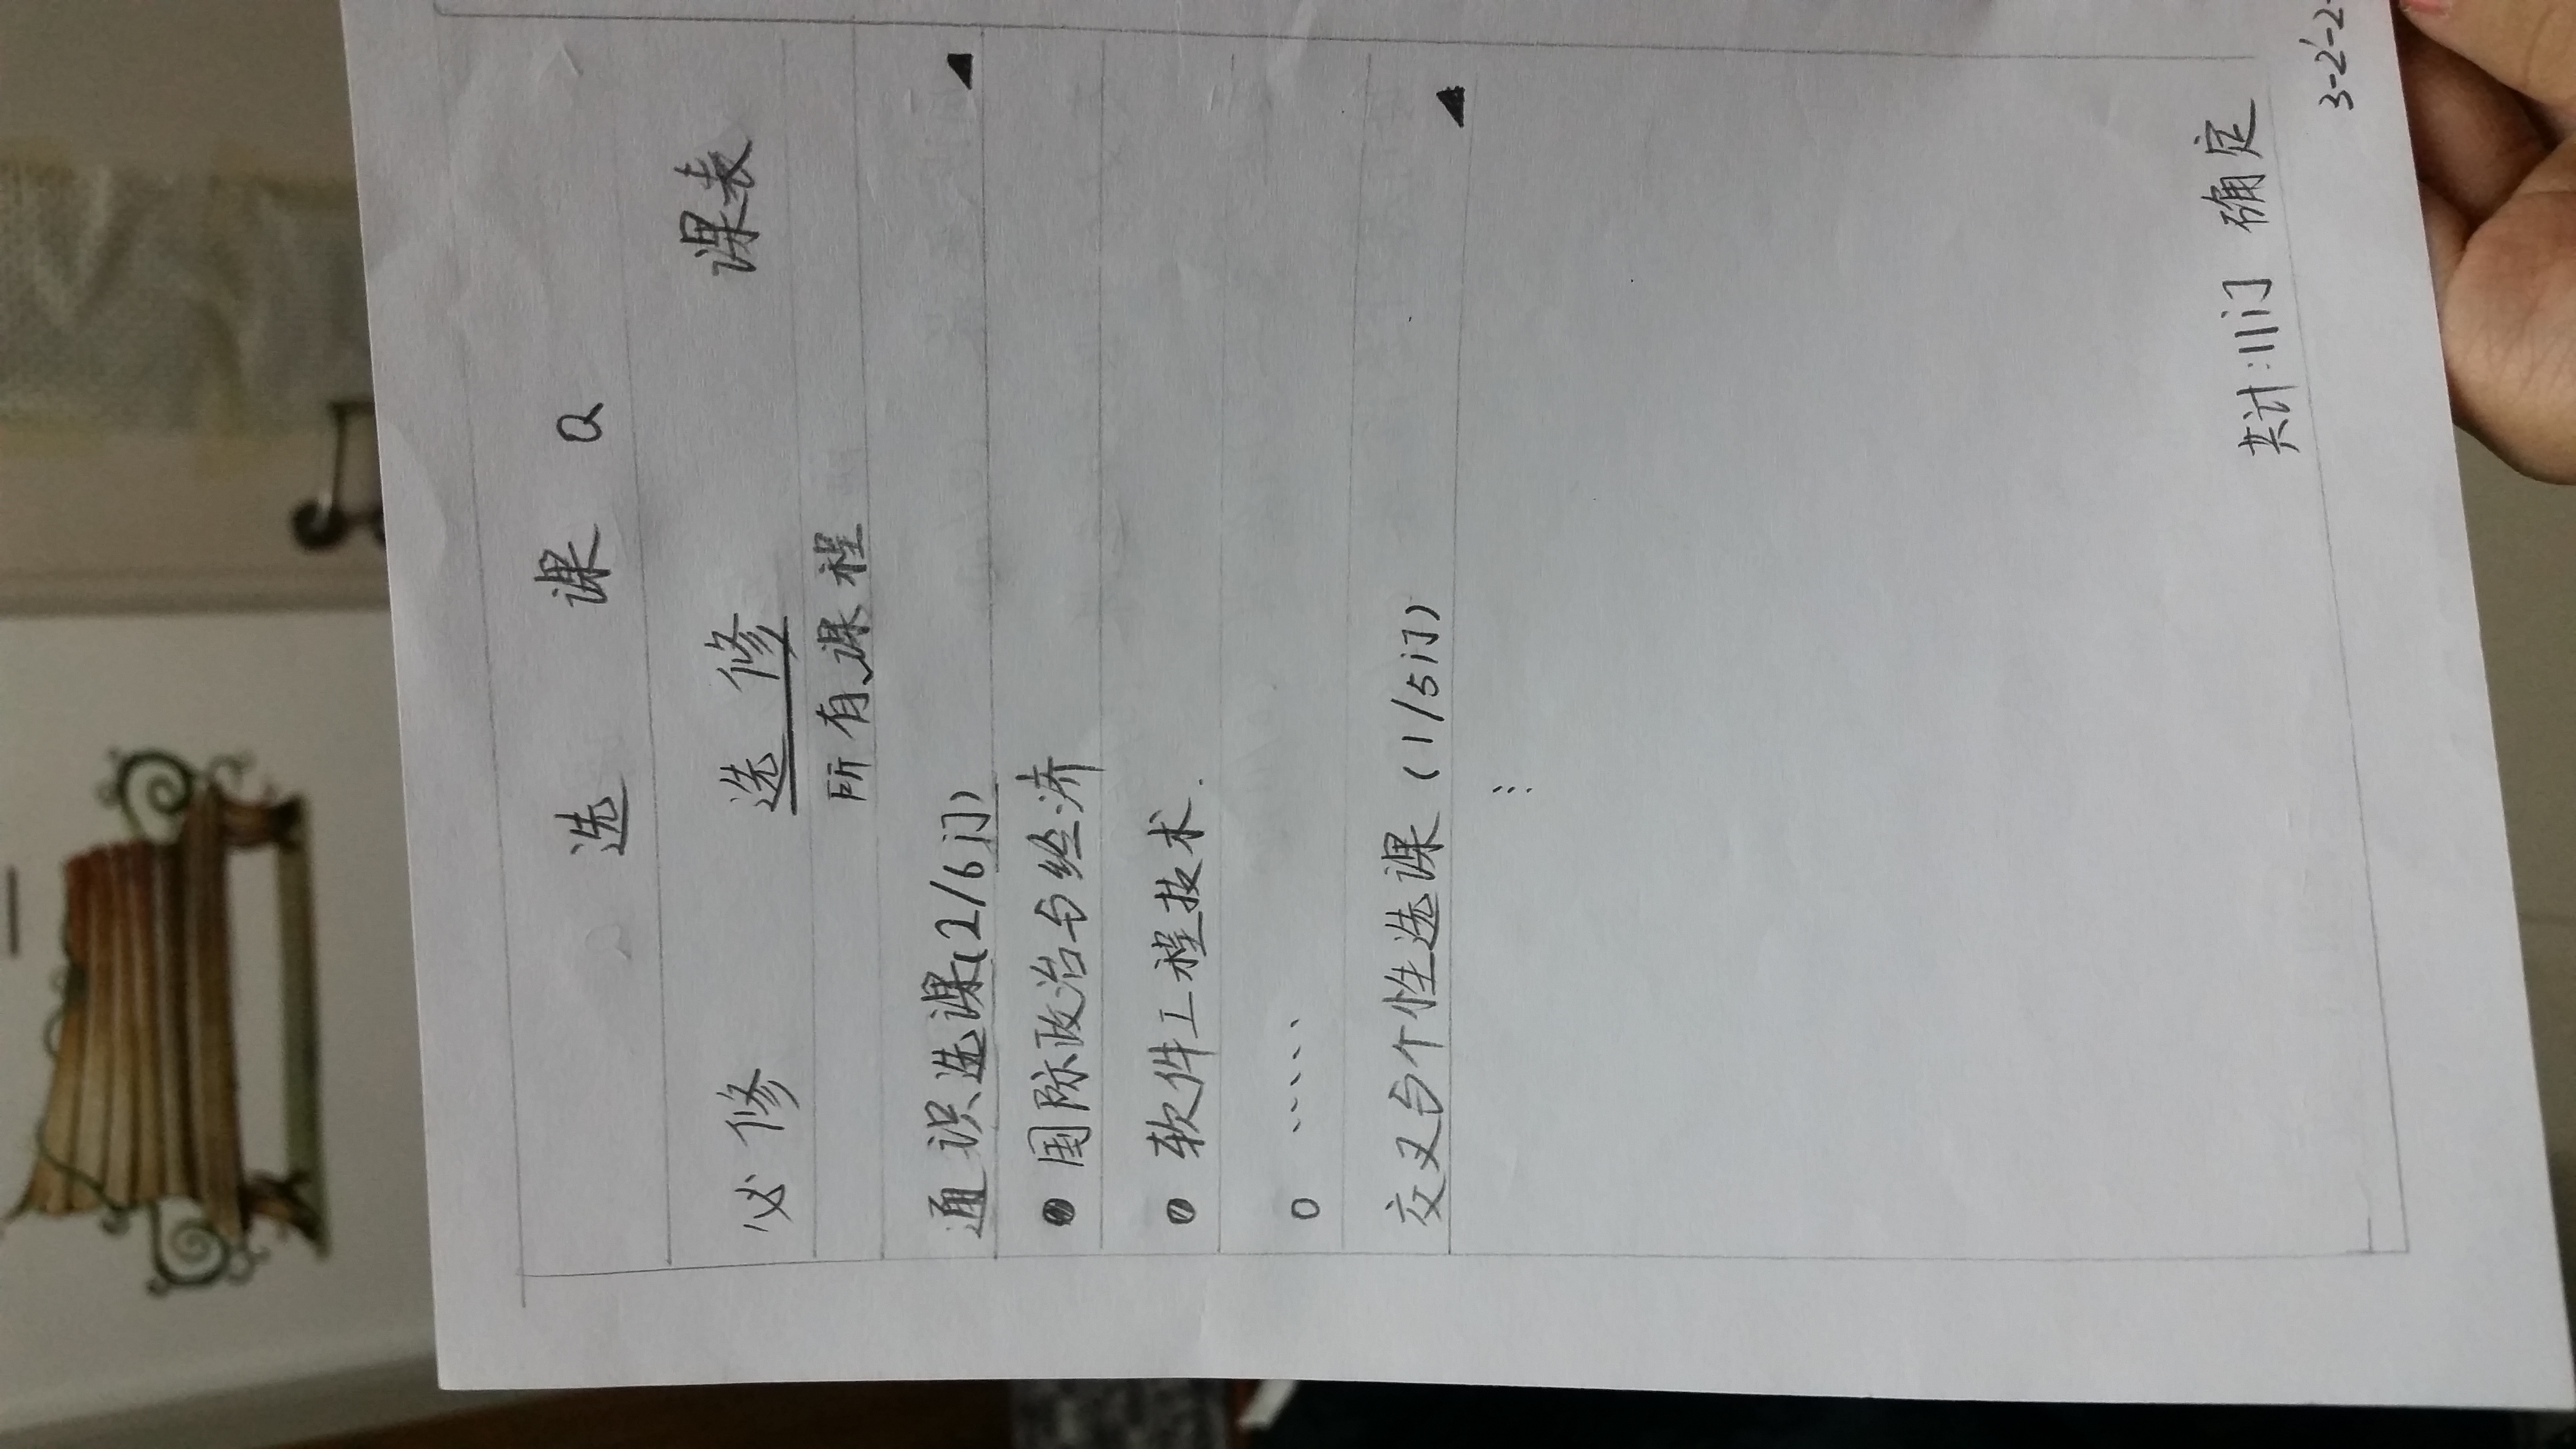 选 课
必修 选修 课表
所有课程
通识选课(2/6门)
国际政治与经济
软件工程技术
......
交叉与个性选课 (1/5门)
共计:11门 确定
3-2'-2-